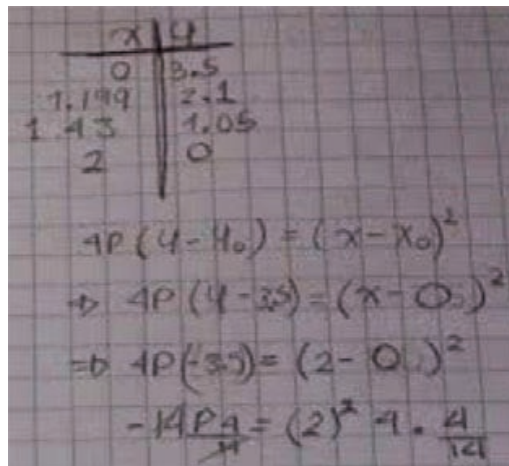 x | y
0 | 3.5
1.199 | 2.1
1.43 | 1.05
2 | 0
4P (y - y₀) = (x - x₀)²
⇒ 4P (y - 3.5) = (x - 0.)²
⇒ 4P(-3.5) = (2 - 0.)²
-14P = (2)² 4 .